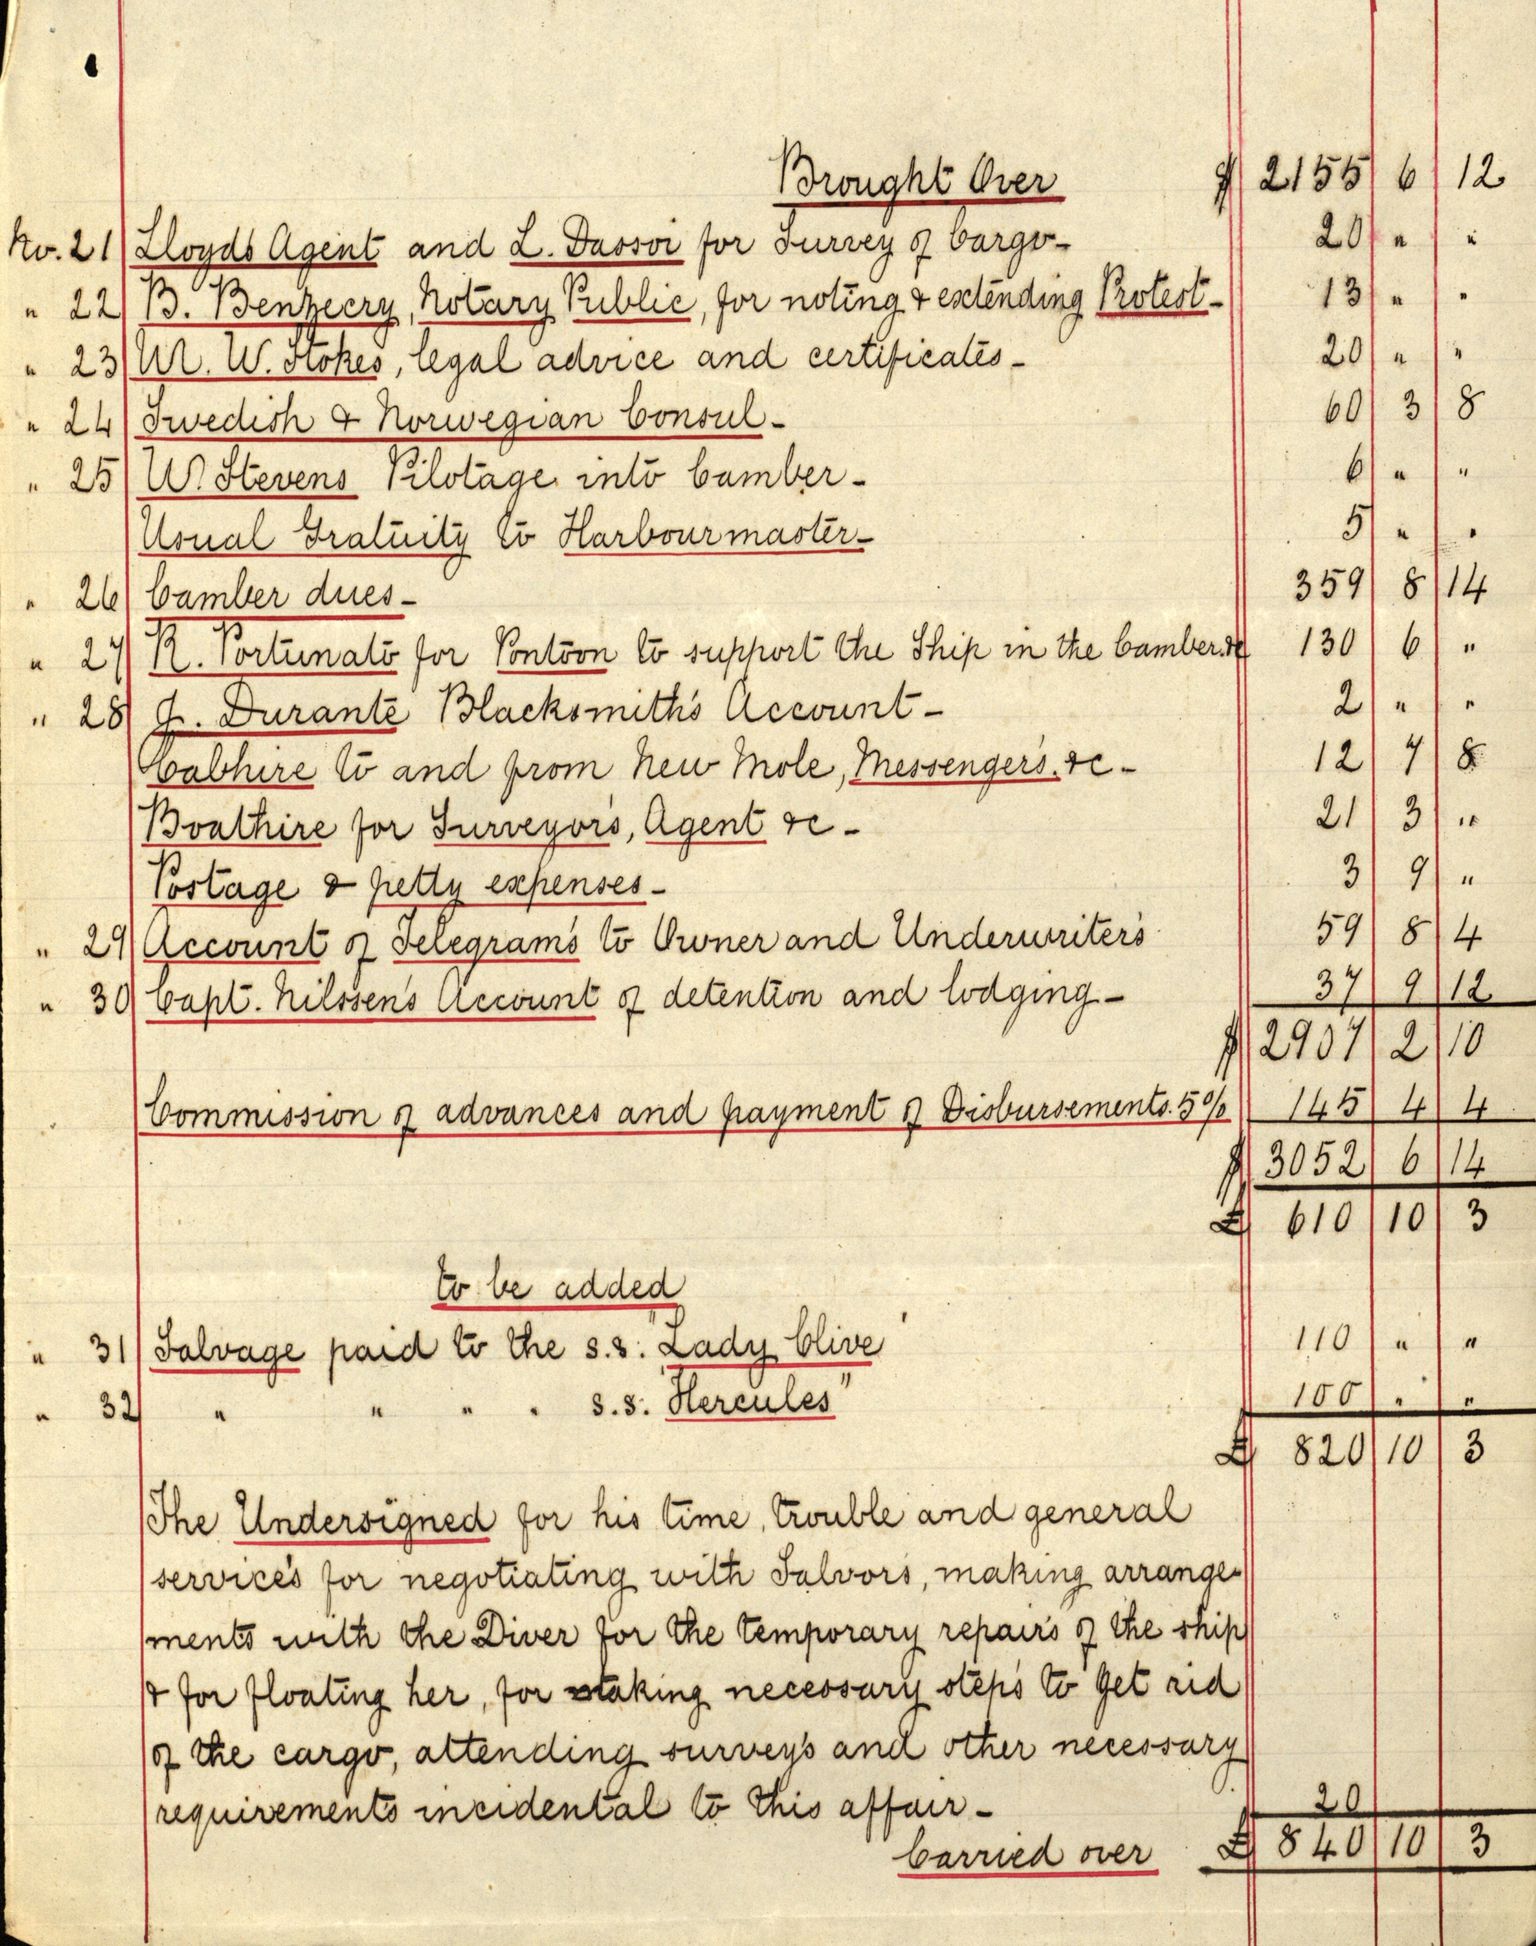 Brought Over $ 2155 6 12
No. 21 Lloyds Agent and L. Dassoi for Survey of Cargo- 20 " "
" 22 B. Benzecry, Notary Public, for noting & extending Protest- 13 " "
" 23 M. W. Stokes, legal advice and certificates- 20 " "
" 24 Swedish & Norwegian Consul- 60 3 8
" 25 W. Stevens Pilotage into Camber- 6 " "
Usual Gratuity to Harbourmaster- 5 " "
" 26 Camber dues- 359 8 14
" 27 R. Portunato for Pontoon to support the Ship in the Camber &c 130 6 "
" 28 J. Durante Blacksmith's Account- 2 " "
Cabhire to and from New Mole, Messengers, &c- 12 7 8
Boathire for Surveyors, Agent &c- 21 3 "
Postage & petty expenses- 3 9 "
" 29 Account of Telegrams to Owner and Underwriters 59 8 4
" 30 Capt. Nilssen's Account of detention and lodging- 37 9 12
$ 2907 2 10
Commission of advances and payment of Disbursements. 5% 145 4 4
$ 3052 6 14
£ 610 10 3
to be added
" 31 Salvage paid to the s.s. "Lady Clive" 110 " "
" 32 " " " " s.s. "Hercules" 100 " "
£ 820 10 3
The Undersigned for his time, trouble and general
services for negotiating with Salvors, making arrange-
ments with the Diver for the temporary repairs of the ship
& for floating her, for taking necessary steps to get rid
of the cargo, attending surveys and other necessary
requirements incidental to this affair- 20
Carried over £ 840 10 3